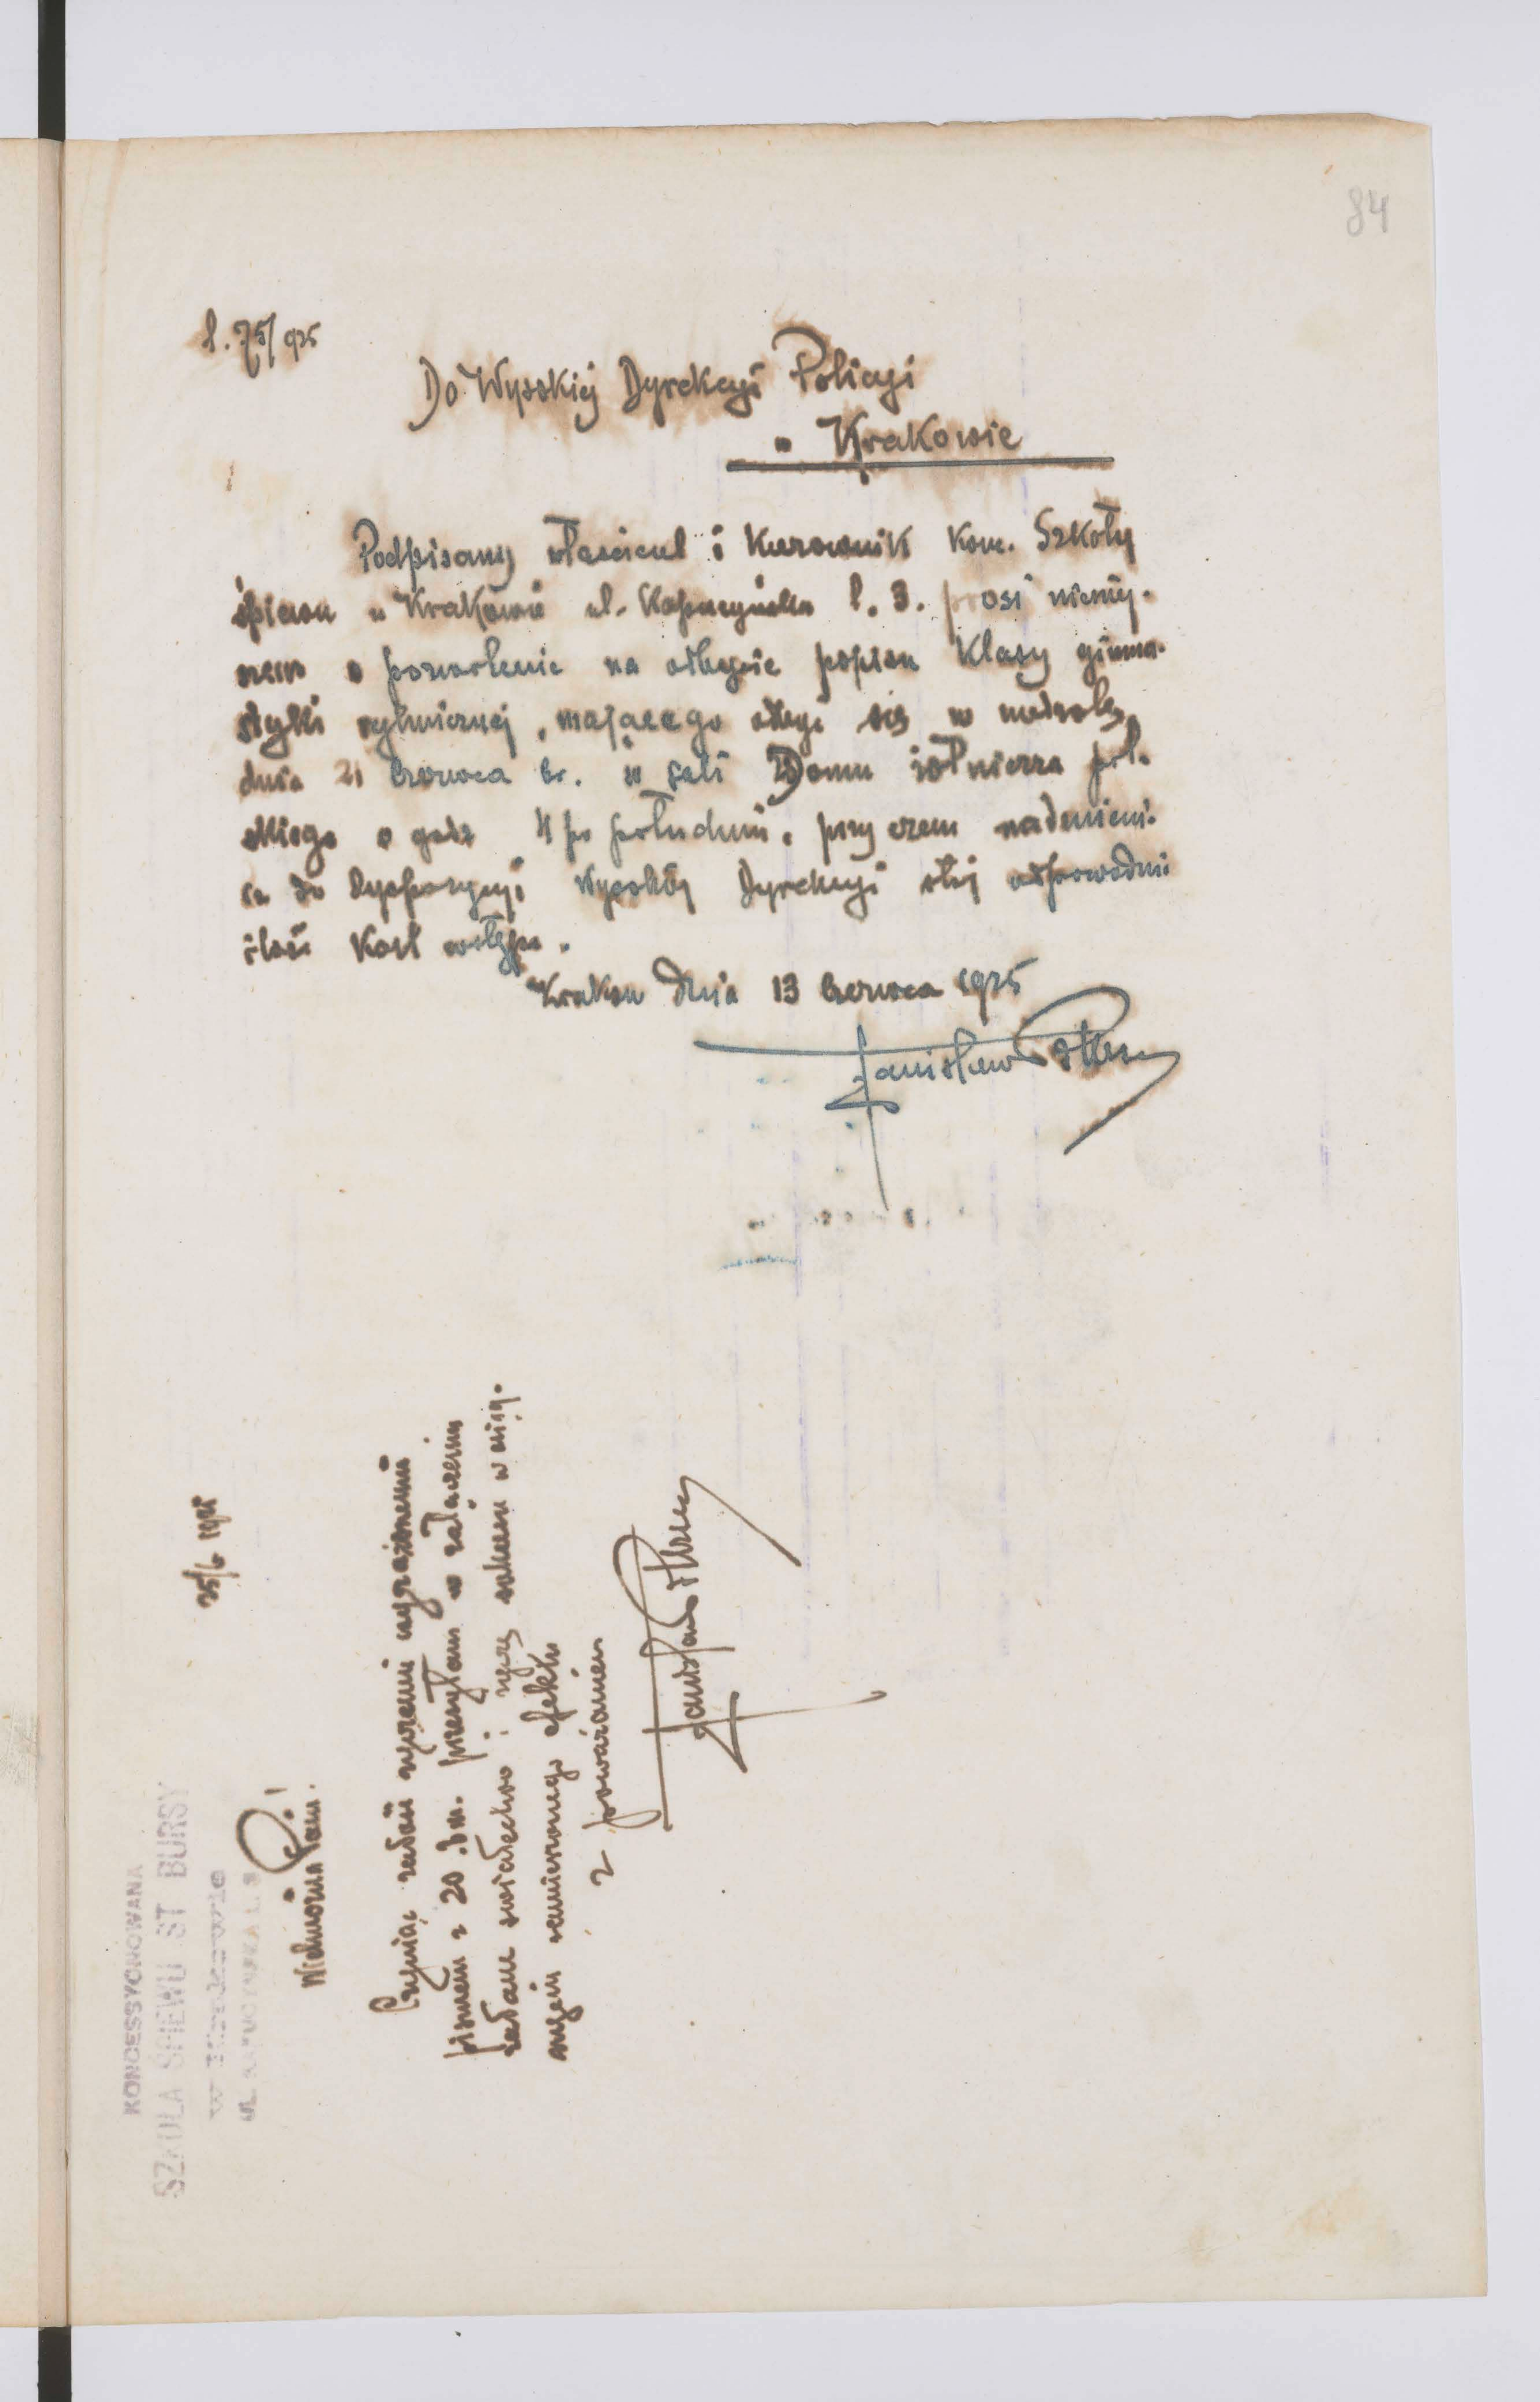 84
l. 75/925
Do Wysokiej Dyrekcyi Policyi
w Krakowie
Podpisany właściciel i Kierownik Konc. Szkoły
śpiewu w Krakowie ul. Kapucyńska l. 3. prosi niniej-
szem o pozwolenie na odbycie popisu Klasy gimna-
styki rytmicznej, mającego odbyć się w niedzielę
dnia 21 czerwca br. w sali Domu żołnierza pol-
skiego o godz 4 po południu, przyczem nadmienia
że do dyspozycyi Wysokiej Dyrekcyi stoi odpowiednia
ilość Kart wstępu.
Kraków dnia 13 czerwca 1925
Stanisław Bursa
KONCESSYONOWANA
SZKOŁA ŚPIEWU ST BURSY
w Krakowie
UL. KAPUCYŃSKA L. 3
25/6 1925
Wielmożna Pani!
Czyniąc zadość życzeniu wyrażonemu
pismem z 20 b.m. przesyłam w załączeniu
żądane świadectwo
zamierzonego efektu
z poważaniem
Stanisław Bursa